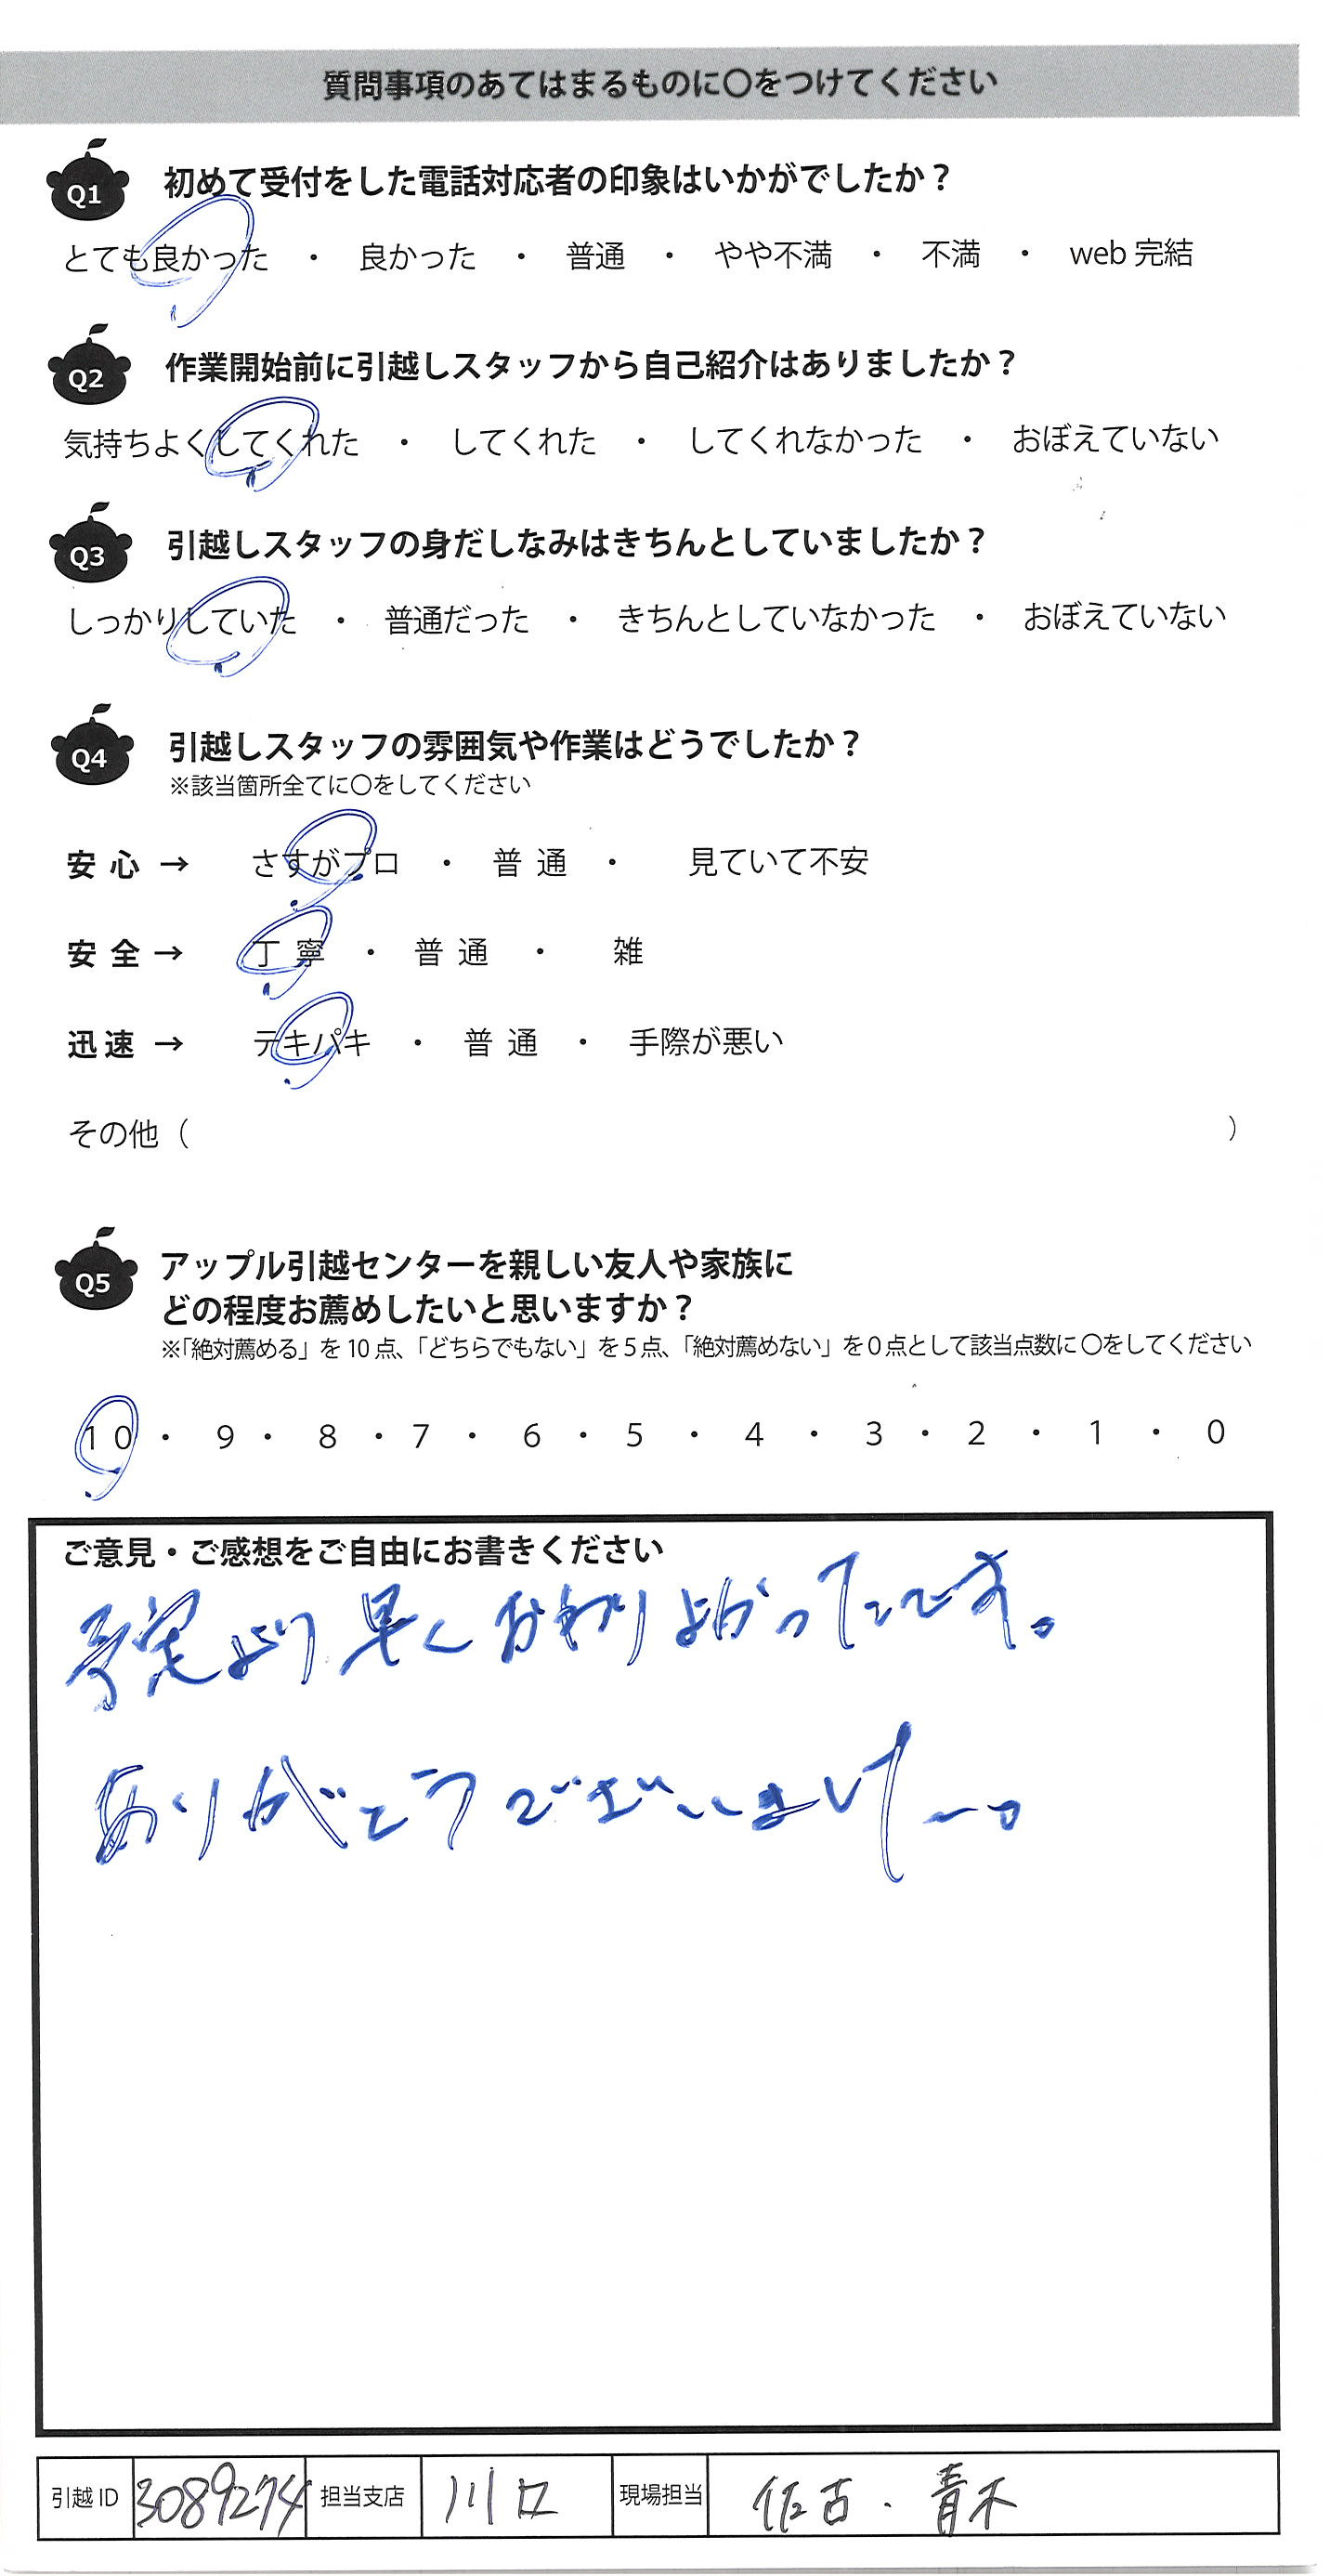 質問事項のあてはまるものに〇をつけてください
Q1 初めて受付をした電話対応者の印象はいかがでしたか？
とても良かった ・ 良かった ・ 普通 ・ やや不満 ・ 不満 ・ web 完結
Q2 作業開始前に引越しスタッフから自己紹介はありましたか？
気持ちよくしてくれた ・ してくれた ・ してくれなかった ・ おぼえていない
Q3 引越しスタッフの身だしなみはきちんとしていましたか？
しっかりしていた ・ 普通だった ・ きちんとしていなかった ・ おぼえていない
Q4 引越しスタッフの雰囲気や作業はどうでしたか？
※該当箇所全てに〇をしてください
安心 → さすがプロ ・ 普通 ・ 見ていて不安
安全 → 丁寧 ・ 普通 ・ 雑
迅速 → テキパキ ・ 普通 ・ 手際が悪い
その他（ ）
Q5 アップル引越センターを親しい友人や家族に
どの程度お薦めしたいと思いますか？
※「絶対薦める」を10点、「どちらでもない」を5点、「絶対薦めない」を0点として該当点数に〇をしてください
10 ・ 9 ・ 8 ・ 7 ・ 6 ・ 5 ・ 4 ・ 3 ・ 2 ・ 1 ・ 0
ご意見・ご感想をご自由にお書きください
予定より早くおわりよかったです。
ありがとうございました。
引越ID 3089274 担当支店 川口 現場担当 佐古・青木